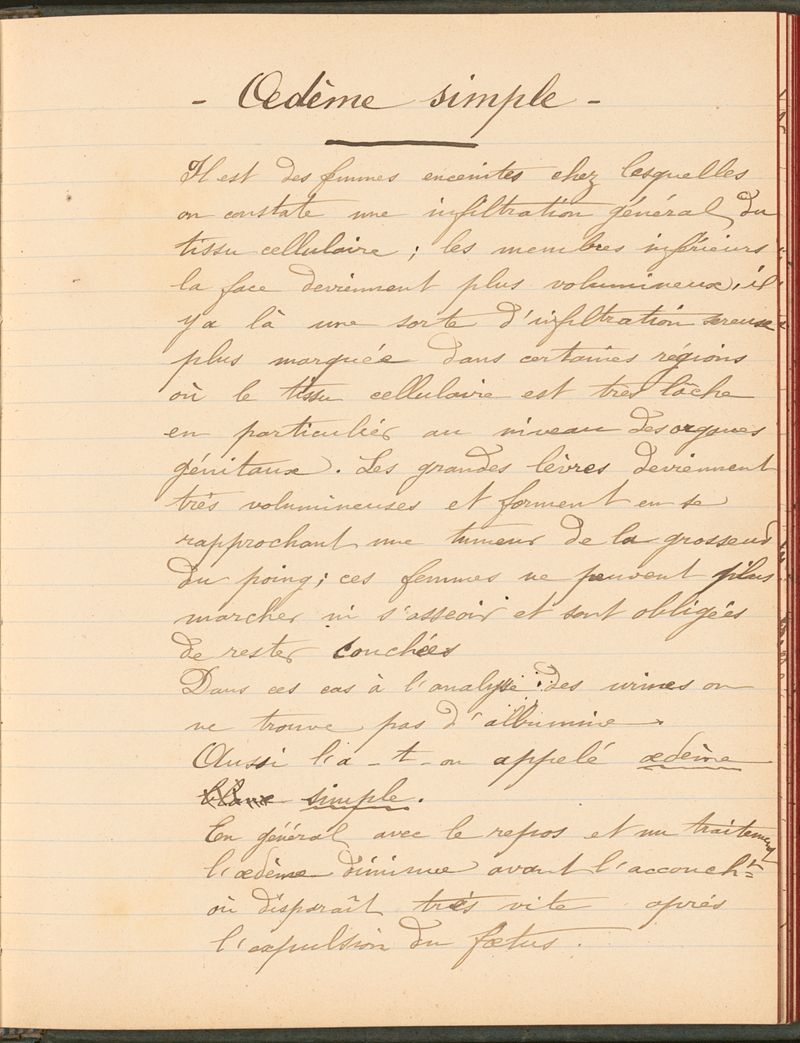 - Œdème simple -
Il est des femmes enceintes chez lesquelles
on constate une infiltration général du
tissu cellulaire ; les membres inférieurs
la face deviennent plus volumineux, il
y a là une sorte d'infiltration sereuse
plus marquée dans certaines régions
où le tissu cellulaire est très lâche
en particulier au niveau des organes
génitaux. Les grandes lèvres deviennent
très volumineuses et forment en se
rapprochant une tumeur de la grosseur
du poing ; ces femmes ne peuvent plus
marcher ni s'asseoir et sont obligées
de rester couchées
Dans ces cas à l'analyse des urines on
ne trouve pas d'albumine.
Aussi l'a-t-on appelé œdème
simple.
En général avec le repos et un traitement
l'œdème diminue avant l'accouch^t
où disparaît très vite après
l'expulsion du fœtus.